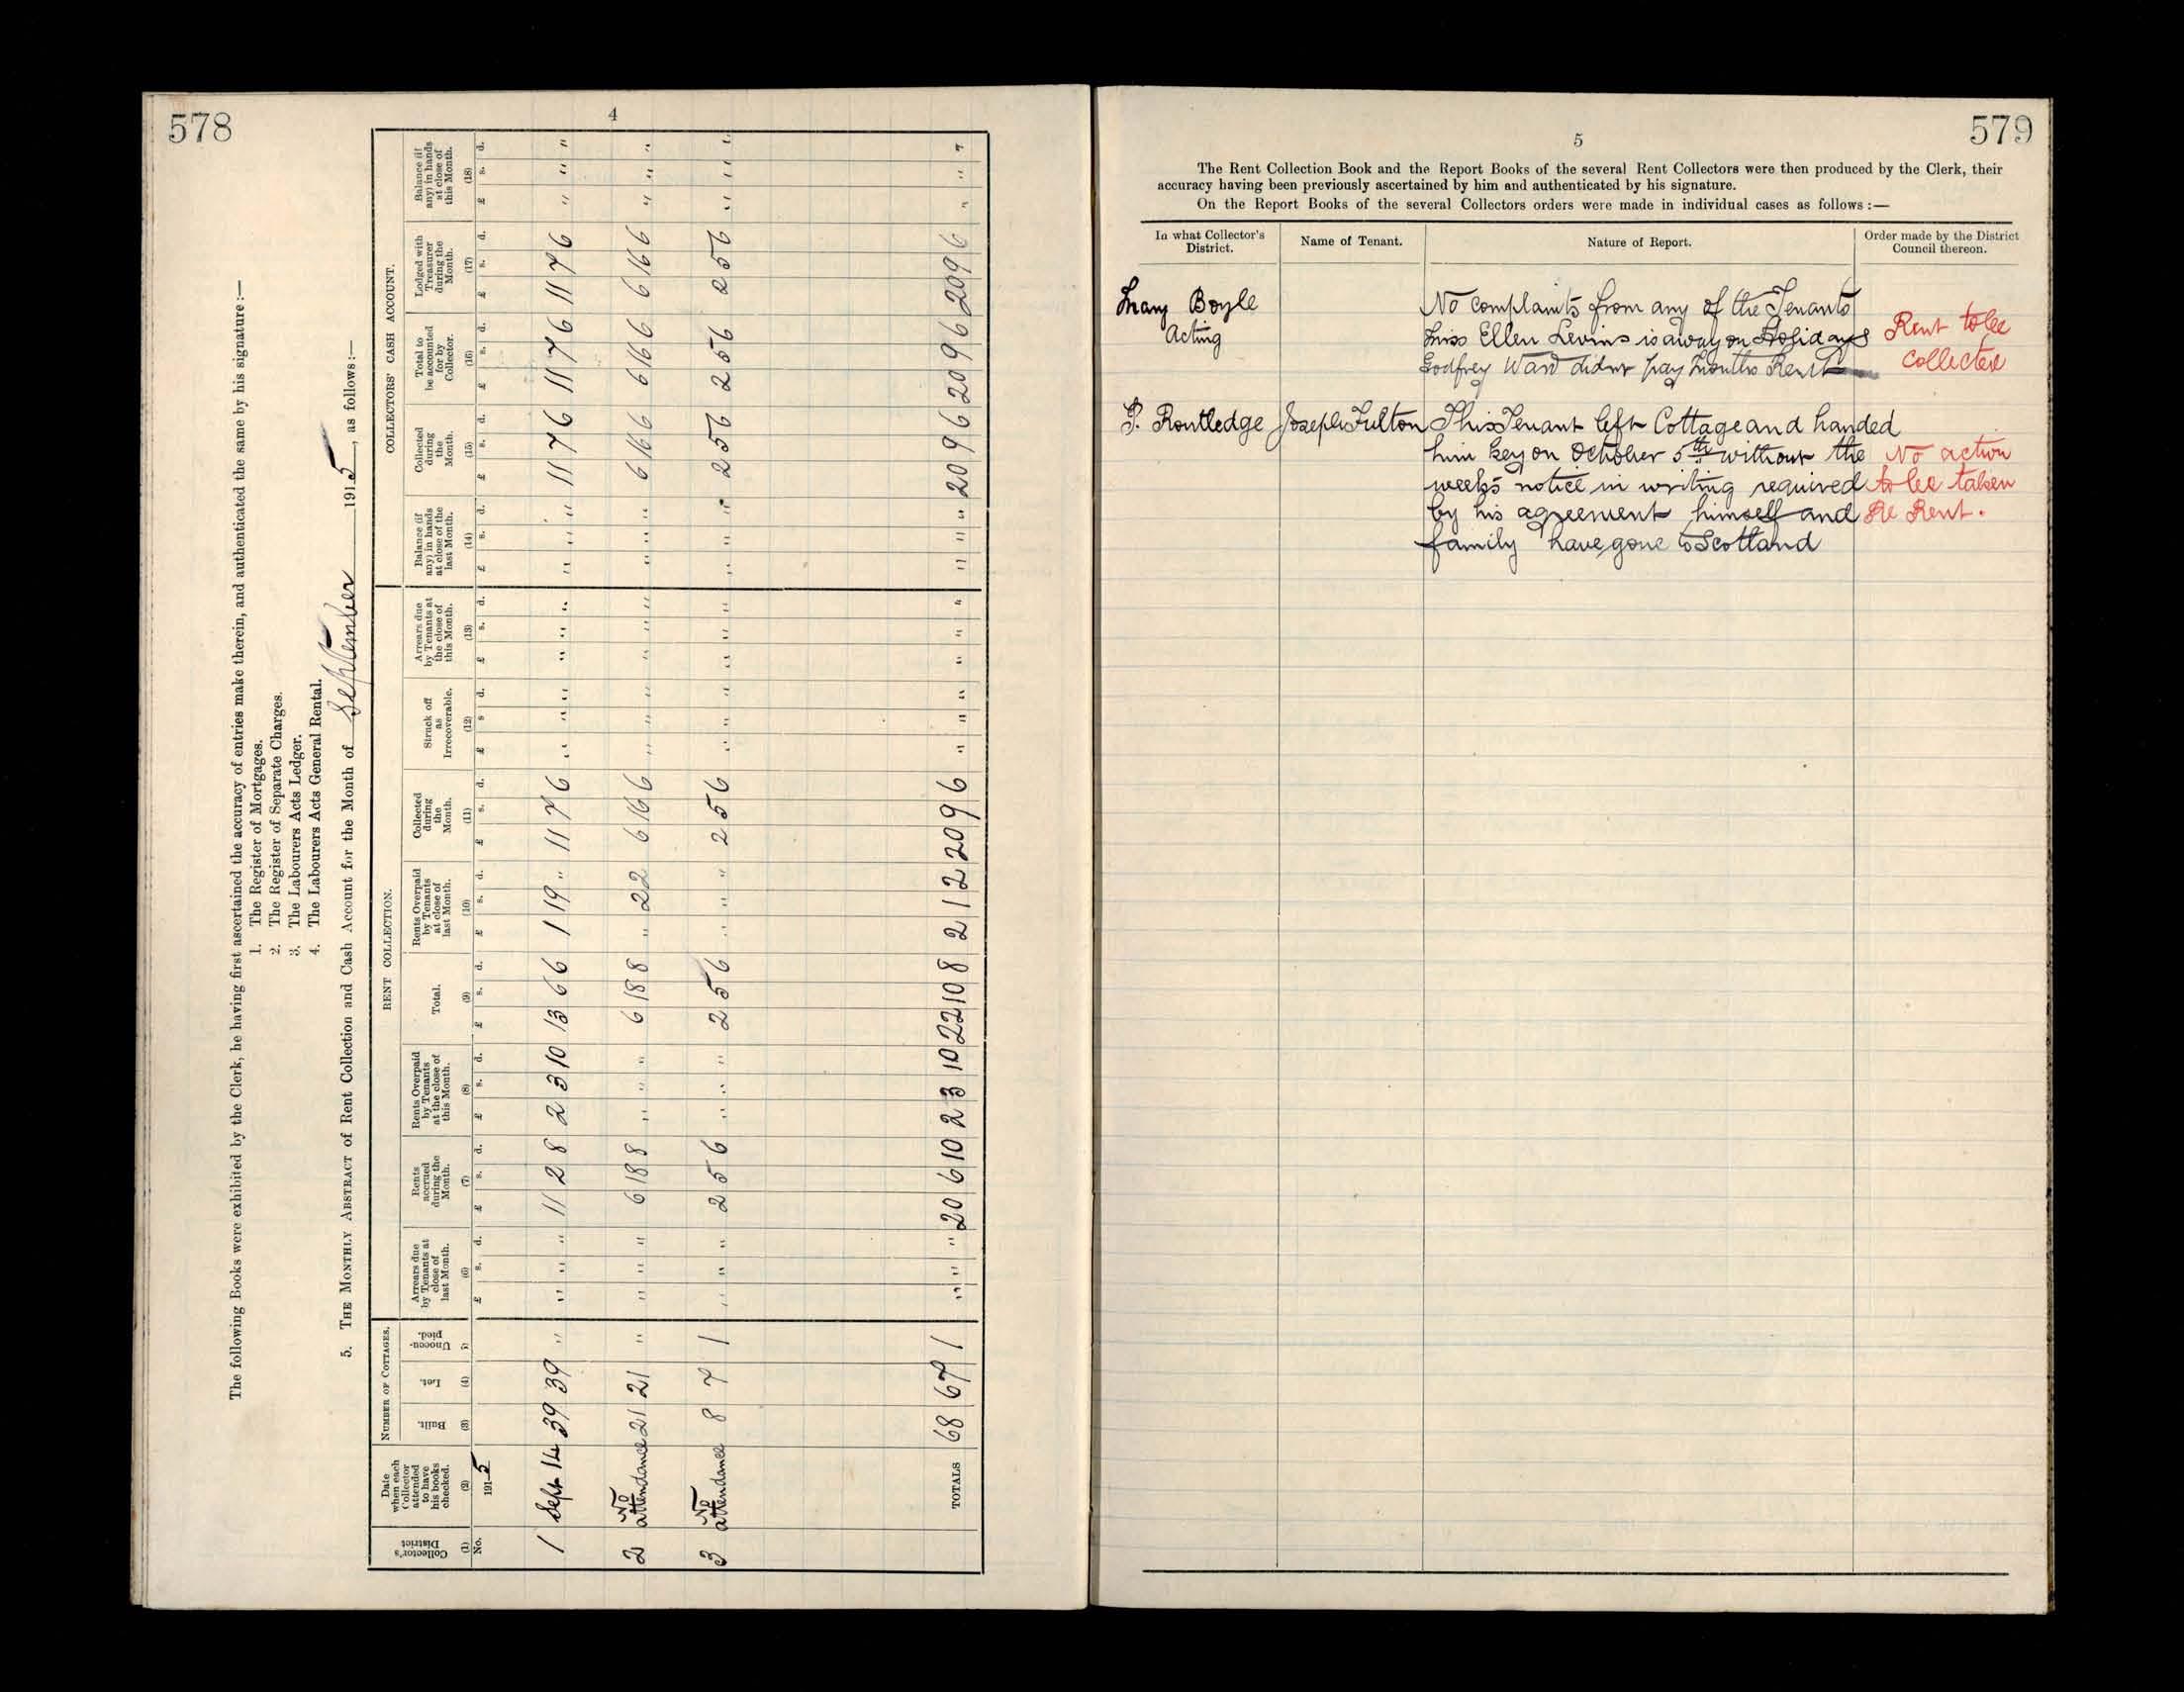 578
4
The following Books were exhibited by the Clerk, he having first ascertained the accuracy of entries make therein, and authenticated the same by his signature :—
1. The Register of Mortgages.
2. The Register of Separate Charges.
3. The Labourers Acts Ledger.
4. The Labourers Acts General Rental.
5. THE MONTHLY ABSTRACT of Rent Collection and Cash Account for the Month of September 1915, as follows:—
NUMBER OF COTTAGES. RENT COLLECTION. COLLECTORS' CASH ACCOUNT.
Collector's District
Date when each Collector attended to have his books checked.
Built.
Let.
Unoccu-pied.
Arrears due by Tenants at close of last Month.
Rents accrued during the Month.
Rents Overpaid by Tenants at the close of this Month.
Total.
Rents Overpaid by Tenants at close of last Month.
Collected during the Month.
Struck off as Irrecoverable.
Arrears due by Tenants at the close of this Month.
Balance (if any) in hands at close of the last Month.
Collected during the Month.
Total to be accounted for by Collector.
Lodged with Treasurer during the Month.
Balance (if any) in hands at close of this Month.
(1) (2) (3) (4) 5 (6) (7) (8) (9) (10) (11) (12) (13) (14) (15) (16) (17) (18)
No. 1915 £ s. d. £ s. d. £ s. d. £ s. d. £ s. d. £ s. d. £ s d. £ s. d. £ s. d. £ s. d. £ s. d. £ s. d. £ s. d.
1 Sept 14 39 39 " " " " 11 2 8 2 3 10 13 6 6 1 19 " 11 7 6 " " " " " " " " " 11 7 6 11 7 6 11 7 6 " " "
2 No attendance 21 21 " " " " 6 18 8 " " " 6 18 8 " 2 2 6 16 6 " " " " " " " " " 6 16 6 6 16 6 6 16 6 " " "
3 No attendance 8 7 1 " " " 2 5 6 " " " 2 5 6 " " " 2 5 6 " " " " " " " " " 2 5 6 2 5 6 2 5 6 " " "
TOTALS 68 67 1 " " " 20 6 10 2 3 10 22 10 8 2 1 2 20 9 6 " " " " " " " " " 20 9 6 20 9 6 20 9 6 " " "
579
5
The Rent Collection Book and the Report Books of the several Rent Collectors were then produced by the Clerk, their
accuracy having been previously ascertained by him and authenticated by his signature.
On the Report Books of the several Collectors orders were made in individual cases as follows :—
In what Collector's District. Name of Tenant. Nature of Report. Order made by the District Council thereon.
Mary Boyle No complaints from any of the Tenants
Acting Miss Ellen Levins is away on Holidays Rent to be
Godfrey Ward didnt pay Months Rent collected
P. Routledge Joseph Fulton This Tenant left Cottage and handed
him key on October 5th without the No action
weeks notice in writing required to be taken
by his agreement himself and Re Rent.
family have gone to Scotland